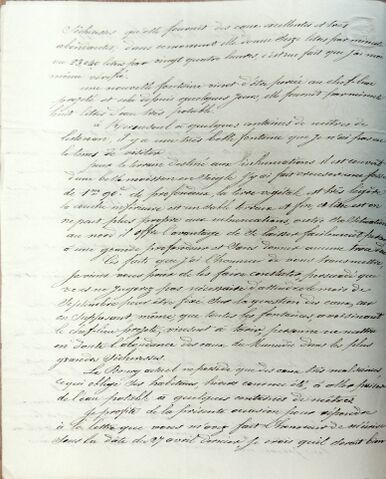 Sécheresses qu'elle fournit des eaux excellentes et très
abondantes; dans ce moment elle donne seize litres par minute
ou 23040 litres par vingt quatre heures, c'est un fait que j'ai moi
même vérifié.
une nouvelle fontaine vient d'être percée au chef-lieu
projeté et depuis quelques jours, elle fournit par minute
huit litres d'eau très potable.
à quelques centaines de mètres de
il y a une très belle fontaine que je n'ai pas eu
le temps de visiter.
pour le terrain destiné aux inhumations il est couvert
d'une belle moisson en Seigle. J'y ai fait creuser une fosse
de profondeur la terre végétale est très légère
la couche inférieure est un sable et on
ne peut plus propre aux inhumations, outre la situation
au nord il offre l'avantage de se laisser facilement
à une grande profondeur et sans donner aucune trace d'eau
les faits que j'ai l'honneur de vous transmettre
je viens vous prier de les faire constater, persuadé que
vous ne jugerez pas nécessaire d'attendre le mois de
Septembre pour être fixé sur la question des eaux, car
en supposant même que toutes les fontaines avoisinant
le chef-lieu projeté, vinssent à tarir personne ne mettra
en doute l'abondance des eaux du dans les plus
grandes Sécheresses.
Le Bourg actuel ne possède que des eaux très mauvaises,
ce qui oblige des habitans hiver comme été, à aller prendre
de l'eau potable à quelques centaines de mètres.
Je profite de la présente occasion pour répondre
à la lettre que vous m'avez fait l'honneur de m'écrire
sous la date du 27 avril dernier. Je crois qu'il serait bien